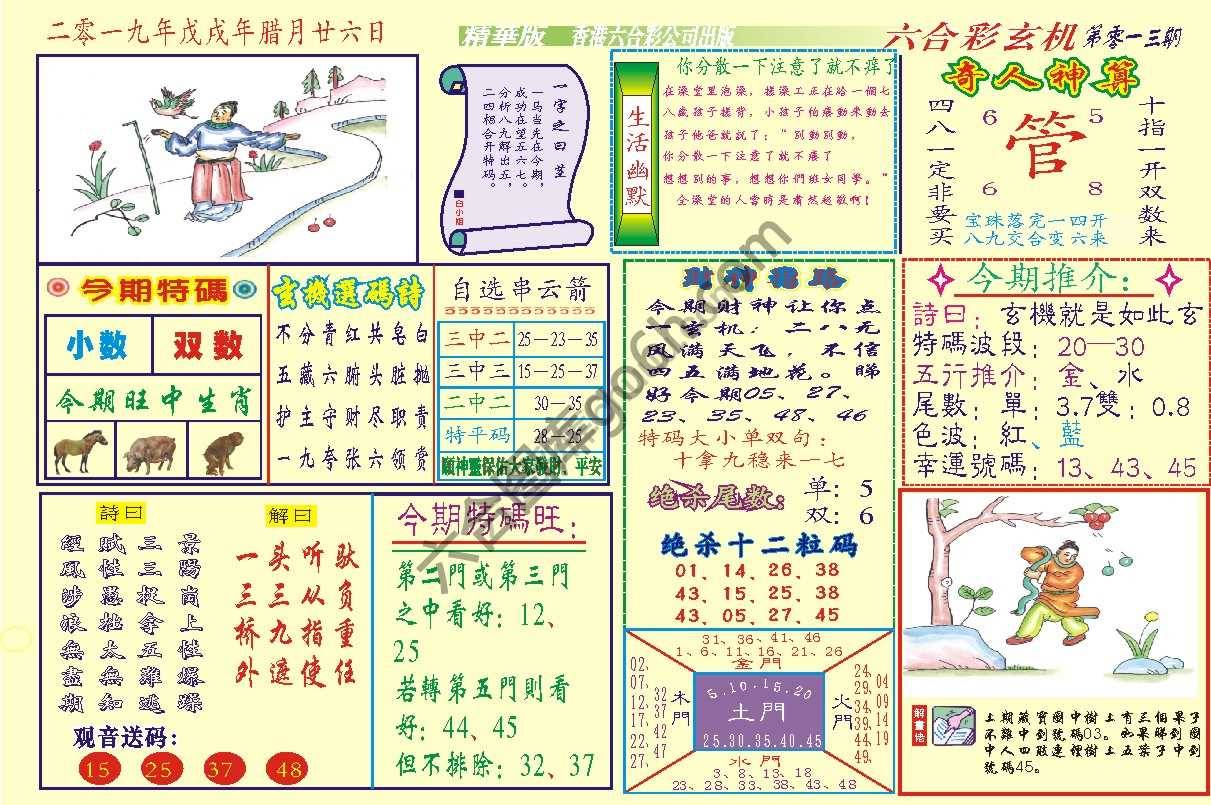 二零一九年戊戌年腊月廿六日
精華版 香港六合彩公司出版
六合彩玄机 第零一三期
一字之曰 茎
一马当先在今期，
成功在望五六七。
分析八九解出五，
二四相合开特码。
白小姐
生活幽默
你分散一下注意了就不痒了
在澡堂里泡澡，搓澡工正在给一個七
八歲孩子搓背，小孩子怕癢動來動去
孩子他爸就說了："别動别動，
你分散一下注意了就不癢了
想想别的事，想想你們班女同學。"
全澡堂的人當時是肅然起敬啊！
奇人神算
四八一定非要买
6 5
管
6 8
宝珠落完一四开
八九交合变六来
十指一开双数来
今期特碼
小数 双数
今期旺中生肖
玄機選碼詩
不分青红共皂白
五藏六腑头脏抛
护主守财尽职责
一九夸张六领赏
自选串云箭
三中二 25—23—35
三中三 15—25—37
二中二 30—35
特平码 28—25
願神靈保佑大家發財、平安
财神
今期财神让你点
一玄机：二八无
风满天飞，不信
四五满地花。睇
好今期05、27、
23、35、48、46
特码大小单双句：
十拿九稳来一七
绝杀尾数：
单：5
双：6
绝杀十二粒码
01、14、26、38
43、15、25、38
43、05、27、45
今期推介：
詩曰：玄機就是如此玄
特碼波段：20—30
五行推介：金、水
尾數：單：3.7雙：0.8
色波：紅、藍
幸運號碼：13、43、45
詩曰
景陽崗上性爆躁
三三捉拿五難逃
賦性愚拙太無知
經風涉浪無盡期
解曰
驮负重任
听从指使
头三九遮
一三桥外
观音送码：
15 25 37 48
今期特碼旺：
第二門或第三門
之中看好：12、
25
若轉第五門則看
好：44、45
但不排除：32、37
31、36、41、46
1、6、11、16、21、26
金門
02、
07、
12、
17、
22、
27、
32
37
42
47
木門
5.10.15.20
土門
25.30.35.40.45
火門
24、
29、
34、
39、
44、
49、
04
09
14
19
水門
3、8、13、18
23、28、33、38、43、48
解畫悟
上期藏寶圖中樹上有三個果子
不難中到號碼03。如果睇到圖
中人四肢連褸樹上五葉子中到
號碼45。
六合图库go06h.com